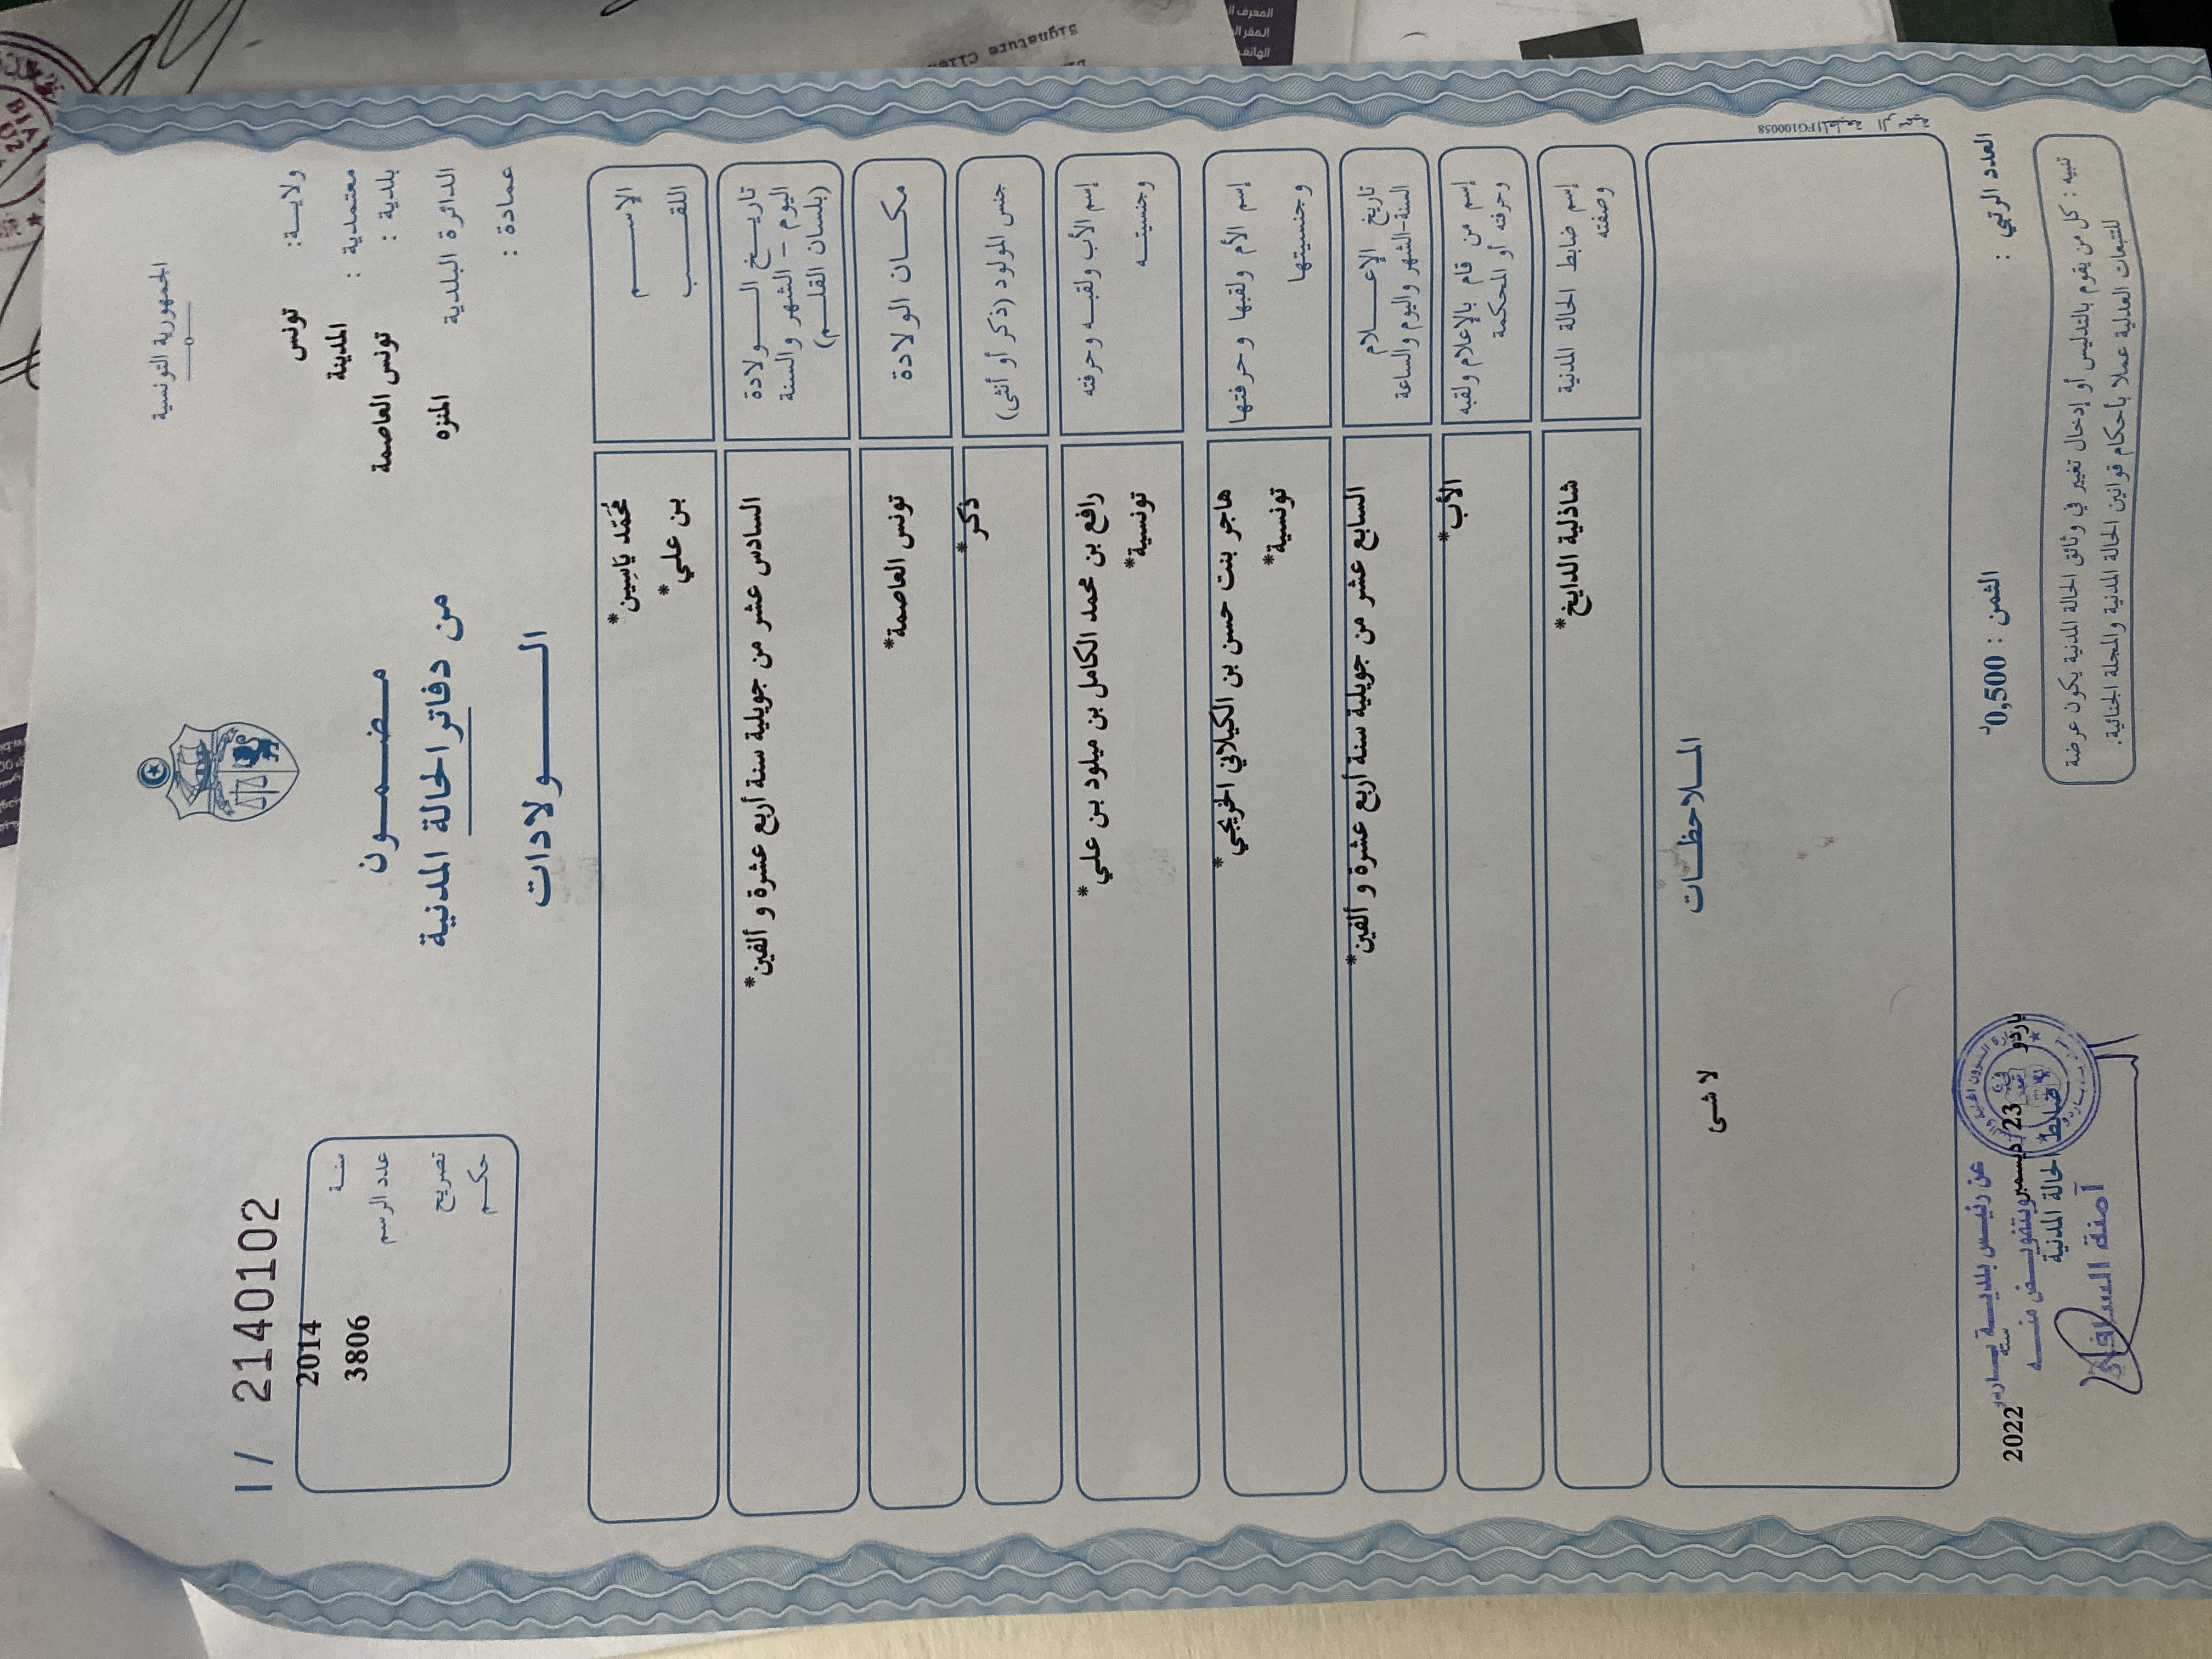 الجمهورية التونسية
ولايـــة: تونس
معتمدية : المدينة
بلدية : تونس العاصمة
الدائرة البلدية المنزه
عمادة :
I / 2140102
سنـــة 2014
عدد الرسم 3806
تصريح
حكـــم
مـــضـــمـــون
من دفاتر الحالة المدنية
الـــــولادات
الإســـــم مُحَمّد يَاسِين*
اللقــــب بن علي*
تاريـــخ الـــــولادة السادس عشر من جويلية سنة أربع عشرة و ألفين*
اليوم – الشهر والسنة
(بلسان القلـــم)
مكـــان الولادة تونس العاصمة*
جنس المولود (ذكر أو أنثى) ذكر*
إسم الأب ولقبـــه وحرفته رافع بن محمد الكامل بن ميلود بن علي*
وجنسيتـــه تونسية*
إسم الأم ولقبها وحرفتها هاجر بنت حسن بن الكيلاني الخريجي*
وجنسيتها تونسية*
تاريخ الإعـــــلام السابع عشر من جويلية سنة أربع عشرة و ألفين*
السنة-الشهر واليوم والساعة
إسم من قام بالإعلام ولقبه الأب*
وحرفته أو المحكمة
إسم ضابط الحالة المدنية شاذلية الدايخ*
وصفته
المـــلاحظـــات
لا شى
FG100058 المطبعة الرسمية
العدد الرتبي :
الثمن : 0,500د
تنبيه : كل من يقوم بالتدليس أو إدخال تغيير في وثائق الحالة المدنية يكون عرضة
للتتبعات العدلية عملا بأحكام قوانين الحالة المدنية والمجلة الجنائية.
باردو 23 ديسمبر سنة 2022
ضابط الحالة المدنية
عن رئيس بلديـــة بـــاردو
وبتفويـــض منـــه
آمنة